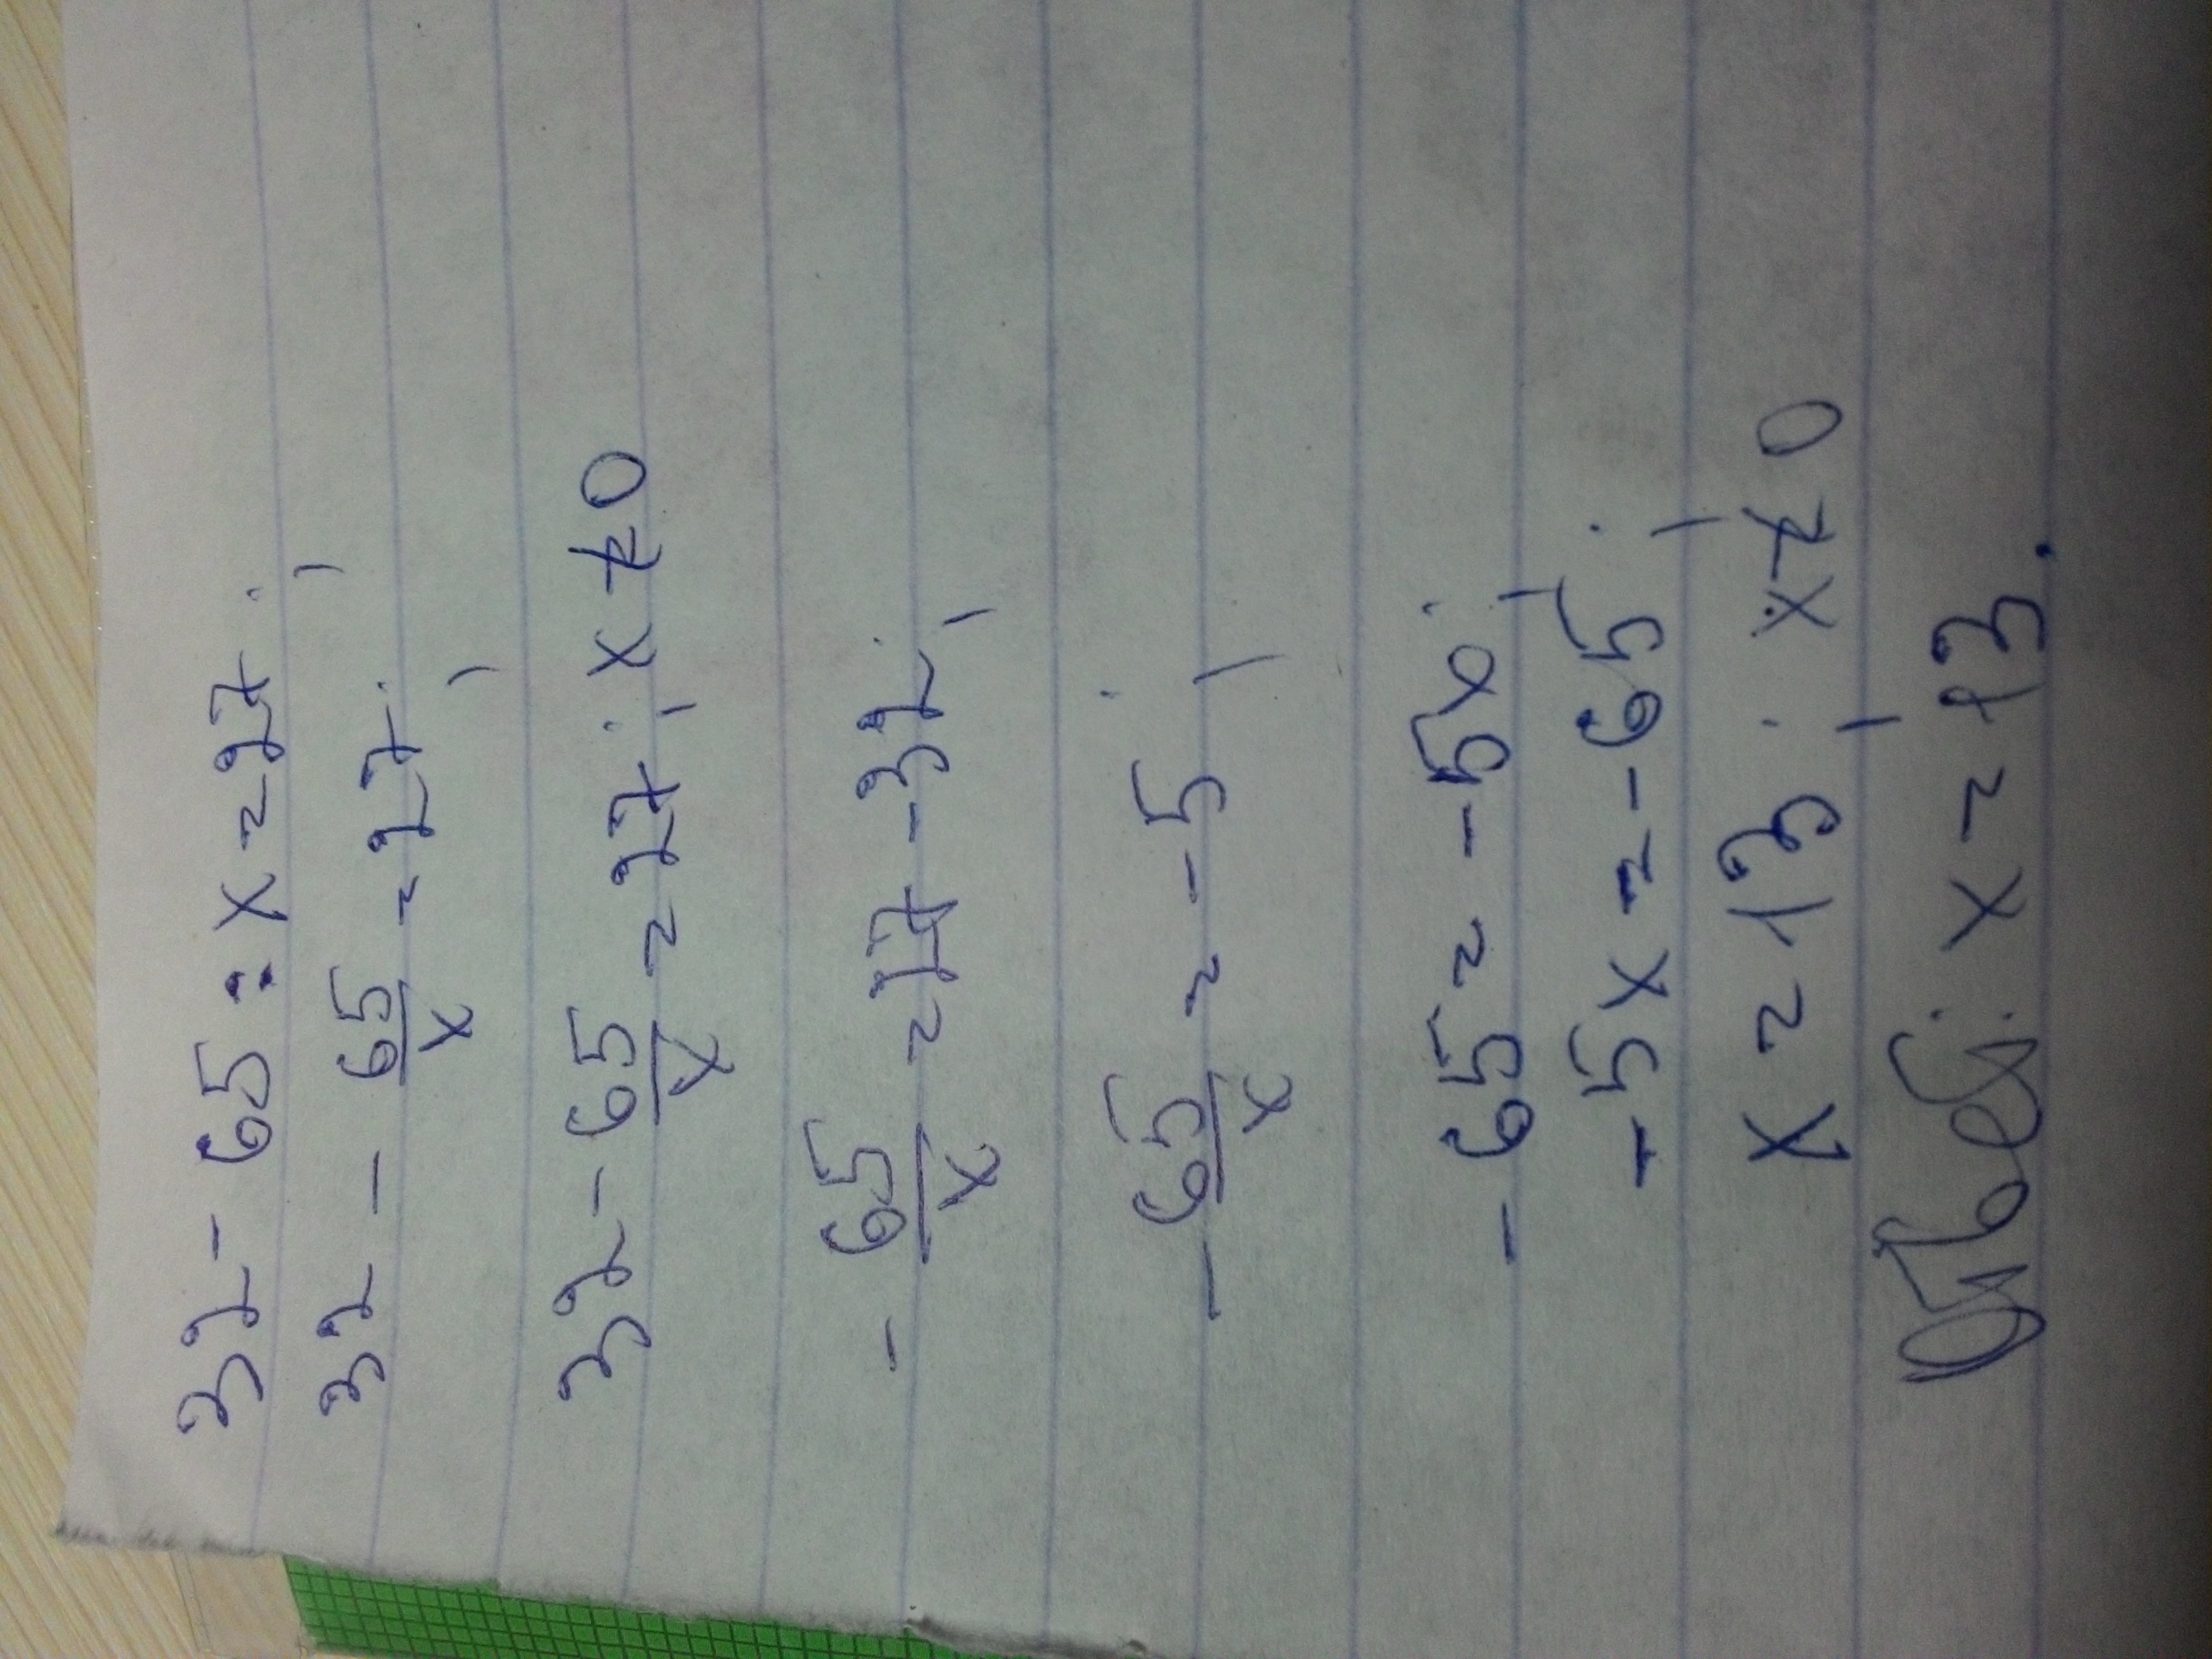 32 - 65 : x = 27;
32 - 65/x = 27;
32 - 65/x = 27; x ≠ 0
- 65/x = 27 - 32;
- 65/x = - 5;
- 65 = - 5x;
- 5x = - 65;
x = 13; x ≠ 0
Ответ: x = 13.